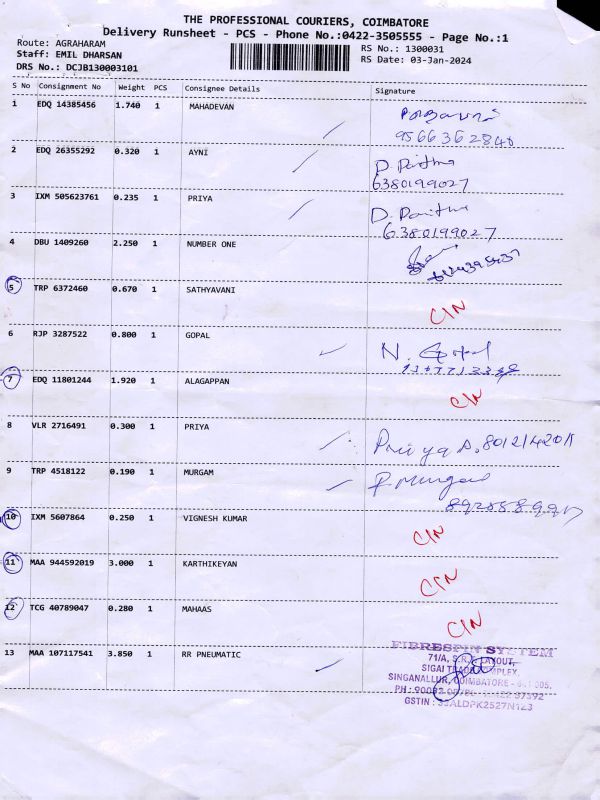 THE PROFESSIONAL COURIERS, COIMBATORE
Delivery Runsheet - PCS - Phone No.:0422-3505555 - Page No.:1
Route: AGRAHARAM
Staff: EMIL DHARSAN
DRS No.: DCJB130003101
RS No.: 1300031
RS Date: 03-Jan-2024
S No Consignment No Weight PCS Consignee Details Signature
1 EDQ 14385456 1.740 1 MAHADEVAN
9566362840
2 EDQ 26355292 0.320 1 AYNI
6380199027
3 IXM 505623761 0.235 1 PRIYA
6380199027
4 DBU 1409260 2.250 1 NUMBER ONE
5 TRP 6372460 0.670 1 SATHYAVANI
CIN
6 RJP 3287522 0.800 1 GOPAL N. Gopal
7 EDQ 11801244 1.920 1 ALAGAPPAN
CIN
8 VLR 2716491 0.300 1 PRIYA
Priya
9 TRP 4518122 0.190 1 MURGAM
10 IXM 5607864 0.250 1 VIGNESH KUMAR
CIN
11 MAA 944592019 3.000 1 KARTHIKEYAN
CIN
12 TCG 40789047 0.280 1 MAHAAS
CIN
13 MAA 107117541 3.850 1 RR PNEUMATIC
FIBRESPIN SYSTEM
71/A, LAYOUT,
SIGAI
SINGANALLUR, COIMBATORE
PH:
GSTIN :